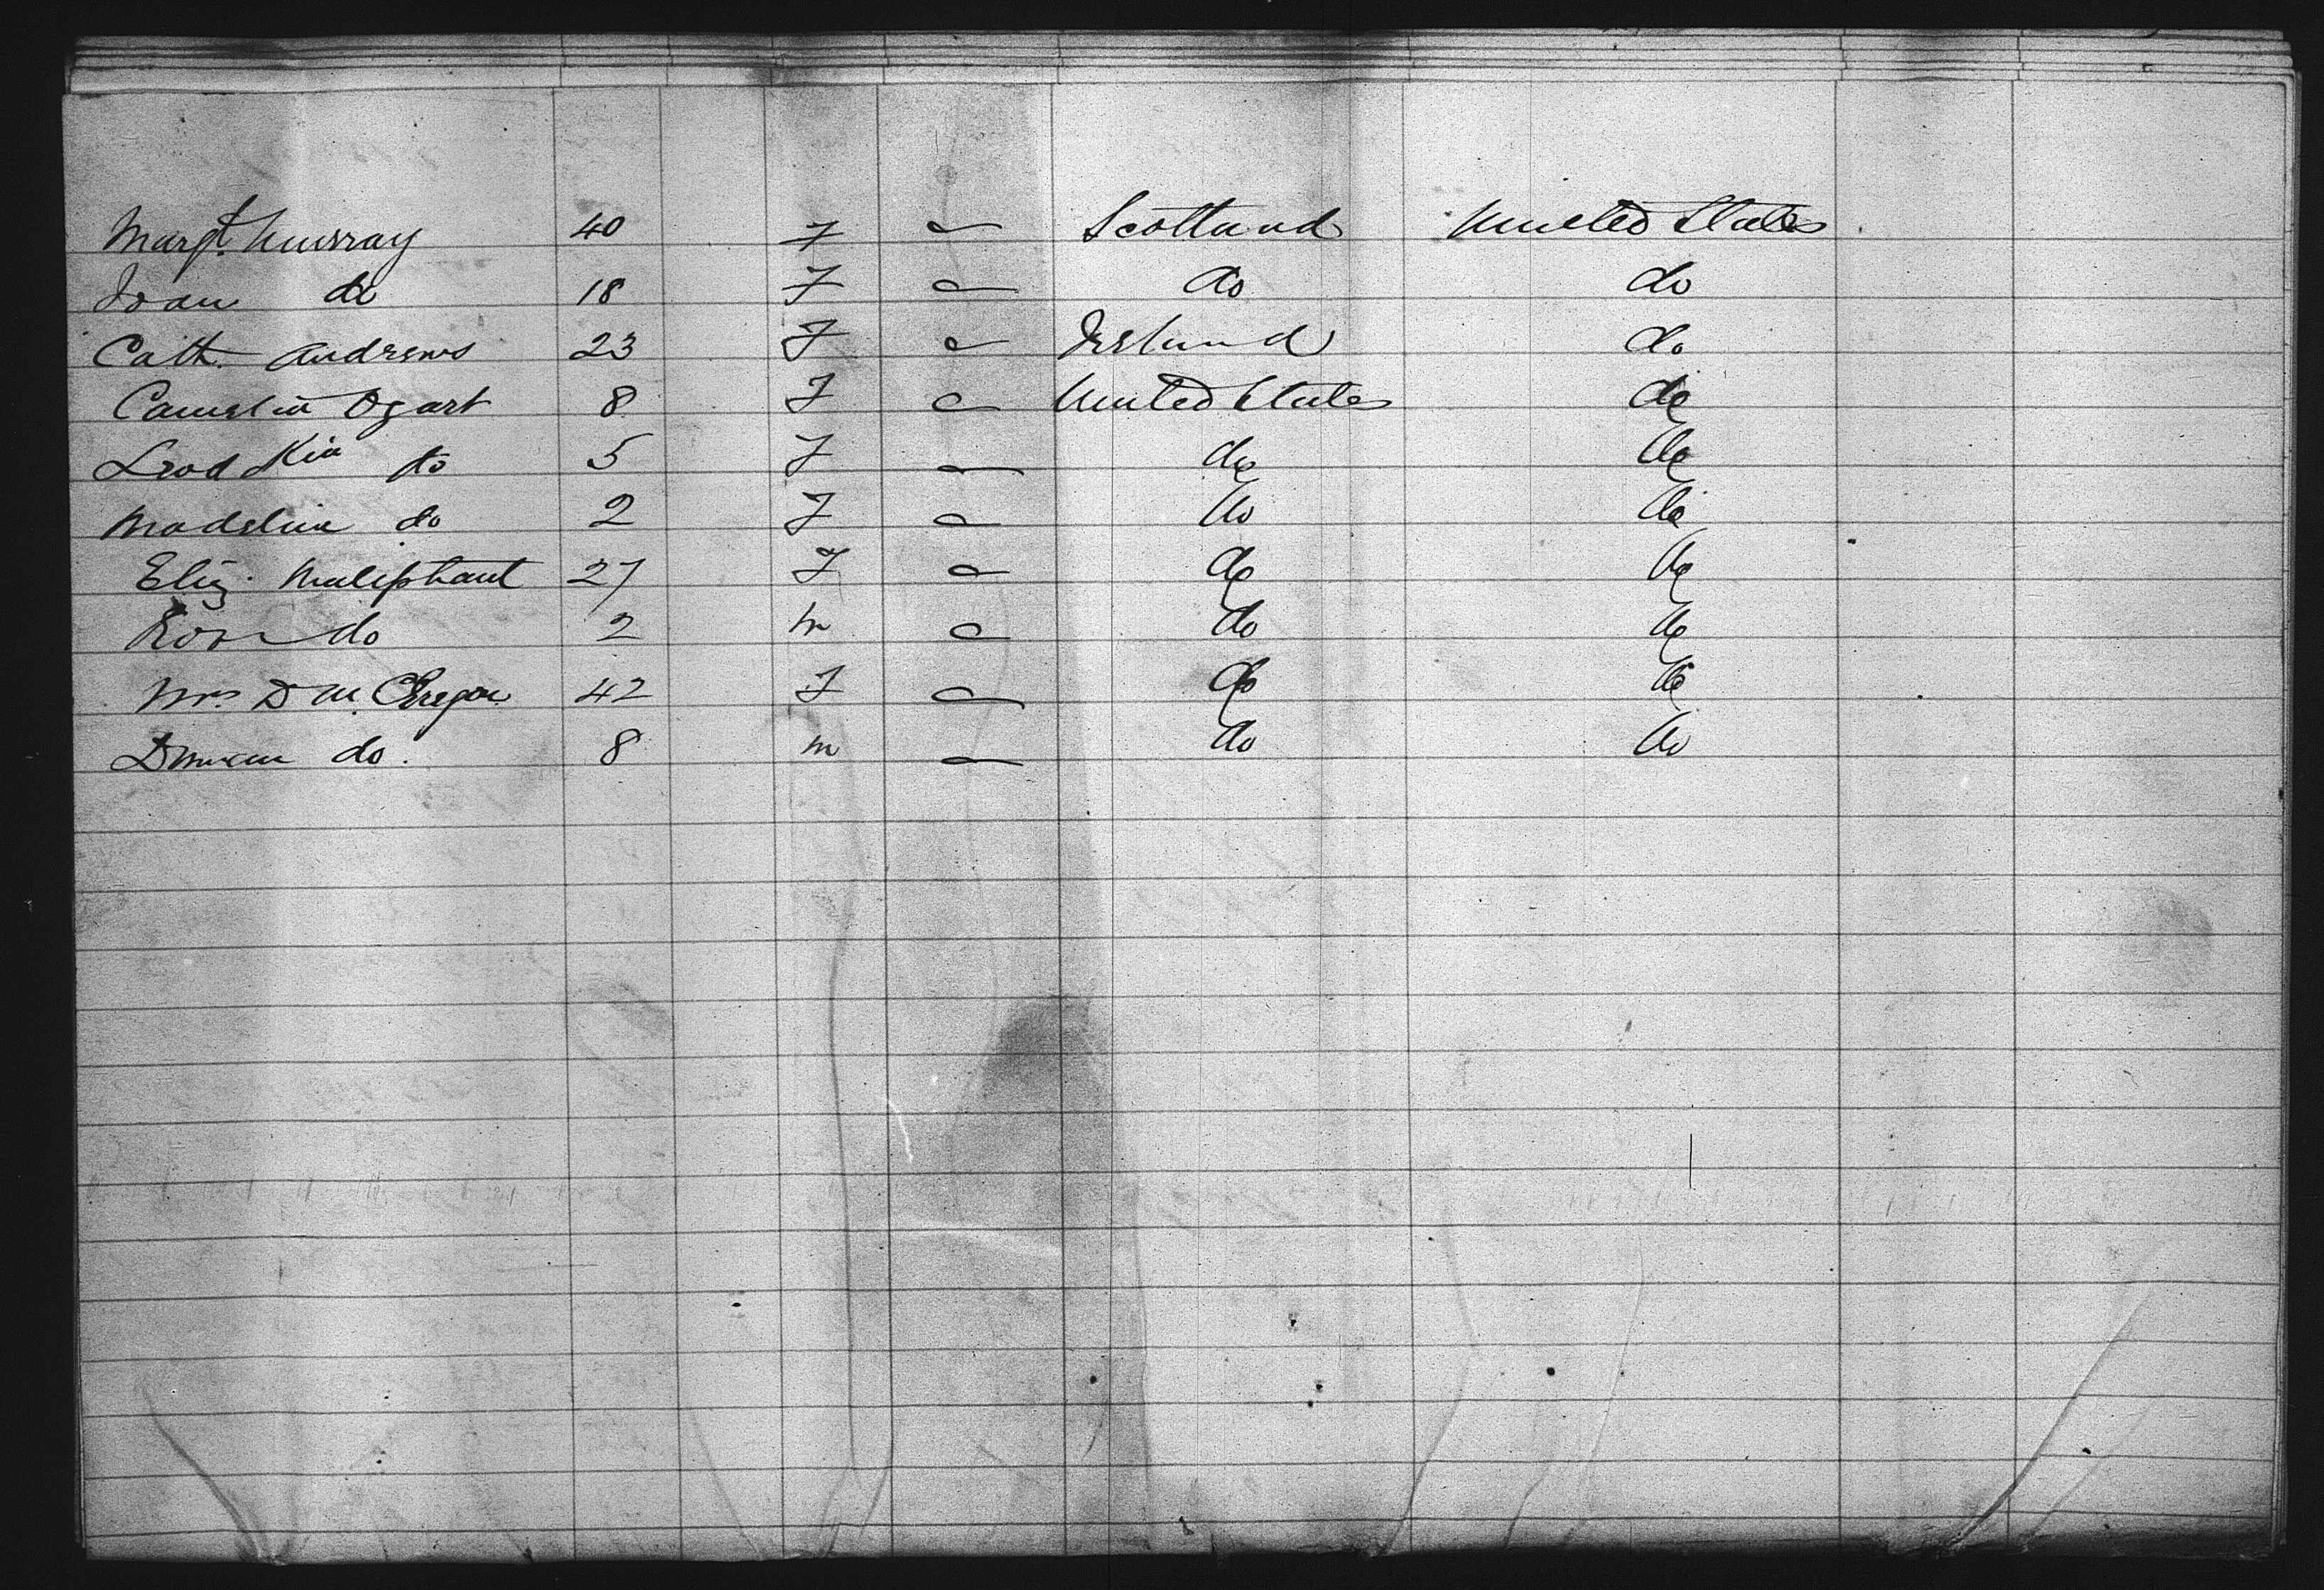 Margt. Murray 40 F — Scotland United States
Joan do 18 F — do do
Cath. Andrews 23 F — Ireland do
Camelia Ogart 8 F — United States do
do 5 F — do do
Madelin do 2 F — do do
Eliz. Maliphant 27 F — do do
do 2 m — do do
Mrs D McGregor 42 F — do do
Duncan do. 8 m — do do